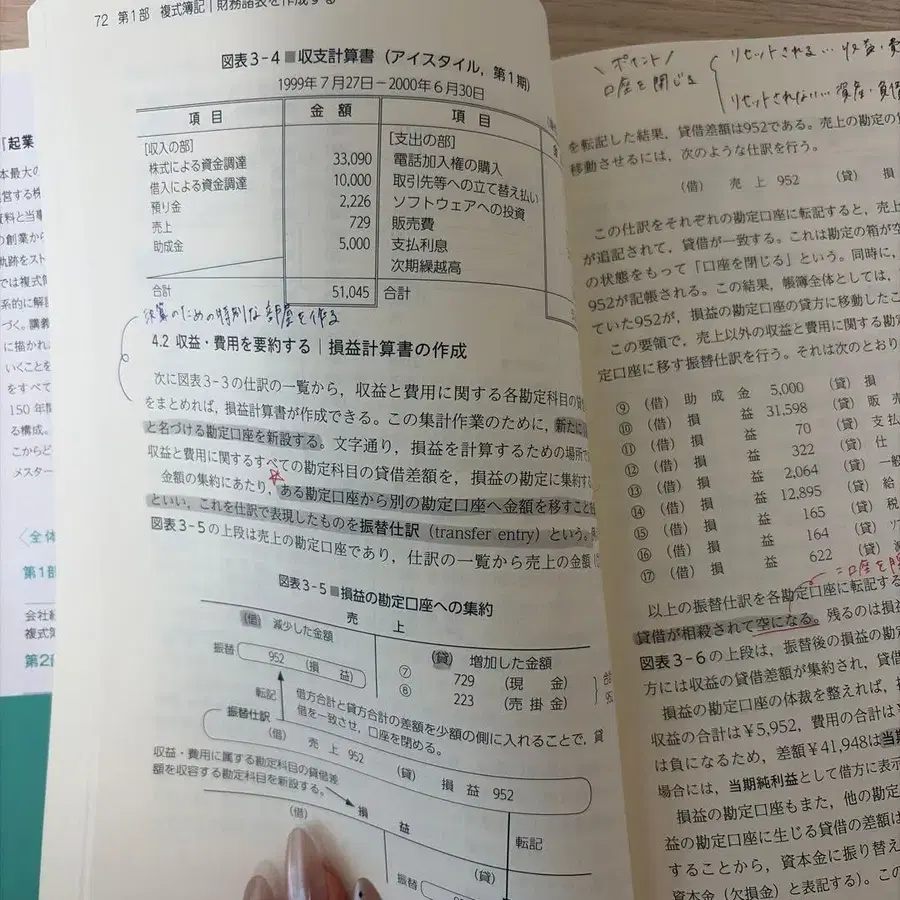 72 第1部 複式簿記|財務諸表を作成する
図表3-4■収支計算書(アイスタイル,第1期)
1999年7月27日-2000年6月30日
項目 金額 項目
[収入の部] [支出の部]
株式による資金調達 33,090 電話加入権の購入
借入による資金調達 10,000 取引先等への立て替え払い
預り金 2,226 ソフトウェアへの投資
売上 729 販売費
助成金 5,000 支払利息
次期繰越高
合計 51,045 合計
決算のための特別な部屋を作る
4.2 収益・費用を要約する|損益計算書の作成
次に図表3-3の仕訳の一覧から,収益と費用に関する各勘定科目の
をまとめれば,損益計算書が作成できる。この集計作業のために,新たに
と名づける勘定口座を新設する。文字通り,損益を計算するための場所
収益と費用に関するすべての勘定科目の貸借差額を,損益の勘定に集約す
金額の集約にあたり,ある勘定口座から別の勘定口座へ金額を移すこと
といい,これを仕訳で表現したものを振替仕訳(transfer entry)という。
図表3-5の上段は売上の勘定口座であり,仕訳の一覧から売上の金額
図表3-5■損益の勘定口座への集約
売 上
(借) 減少した金額
(貸) 増加した金額
振替 952 (損 益)
⑦ 729 (現 金)
⑧ 223 (売 掛 金)
転記
借方合計と貸方合計の差額を少額の側に入れることで,貸
借を一致させ,口座を閉める。
振替仕訳
(借) 売 上 952 (貸) 損 益 952
収益・費用に属する勘定科目の貸借差
額を収容する勘定科目を新設する。
損 益
(借)
(貸)
転記
振替
ポイント
口座を閉じる
リセットされる… 収益・費
リセットされない… 資産・負債
を転記した結果,貸借差額は952である。売上の勘定の
移動させるには,次のような仕訳を行う。
(借) 売 上 952 (貸) 損
この仕訳をそれぞれの勘定口座に転記すると,売上
が追記されて,貸借が一致する。これは勘定の箱が空
の状態をもって「口座を閉じる」という。同時に,
952が記帳される。この結果,帳簿全体としては,
ていた952が,損益の勘定口座の貸方に移動したこ
この要領で,売上以外の収益と費用に関する勘定
定口座に移す振替仕訳を行う。それは次のとおり
⑨ (借) 助 成 金 5,000 (貸) 損
⑩ (借) 損 益 31,598 (貸) 販 売
⑪ (借) 損 益 70 (貸) 支 払
⑫ (借) 損 益 322 (貸) 仕
⑬ (借) 損 益 2,064 (貸) 一般
⑭ (借) 損 益 12,895 (貸) 給
⑮ (借) 損 益 165 (貸) 税
⑯ (借) 損 益 164 (貸) ソ
⑰ (借) 損 益 622 (貸)
以上の振替仕訳を各勘定口座に転記する
貸借が相殺されて空になる。残るのは損益
図表3-6の上段は,振替後の損益の勘定
方には収益の貸借差額が集約され,貸借
損益の勘定口座の体裁を整えれば,
収益の合計は¥5,952,費用の合計は¥
は負になるため,差額¥41,948は当期
場合には,当期純利益として借方に表示
損益の勘定口座もまた,他の勘定
益の勘定口座に生じる貸借の差額は
することから,資本金に振り替え
資本金(欠損金)と表記する)。この
「起業
本最大の
営する株
資料と当事
の創業から
軌跡をスト
では複式簿
系的に解説
づく。講義
に描かれ
いくことを
をすべて
150年間
る構成。
こからど
メスター
〈全体
第1部
会社経
複式簿
第2部